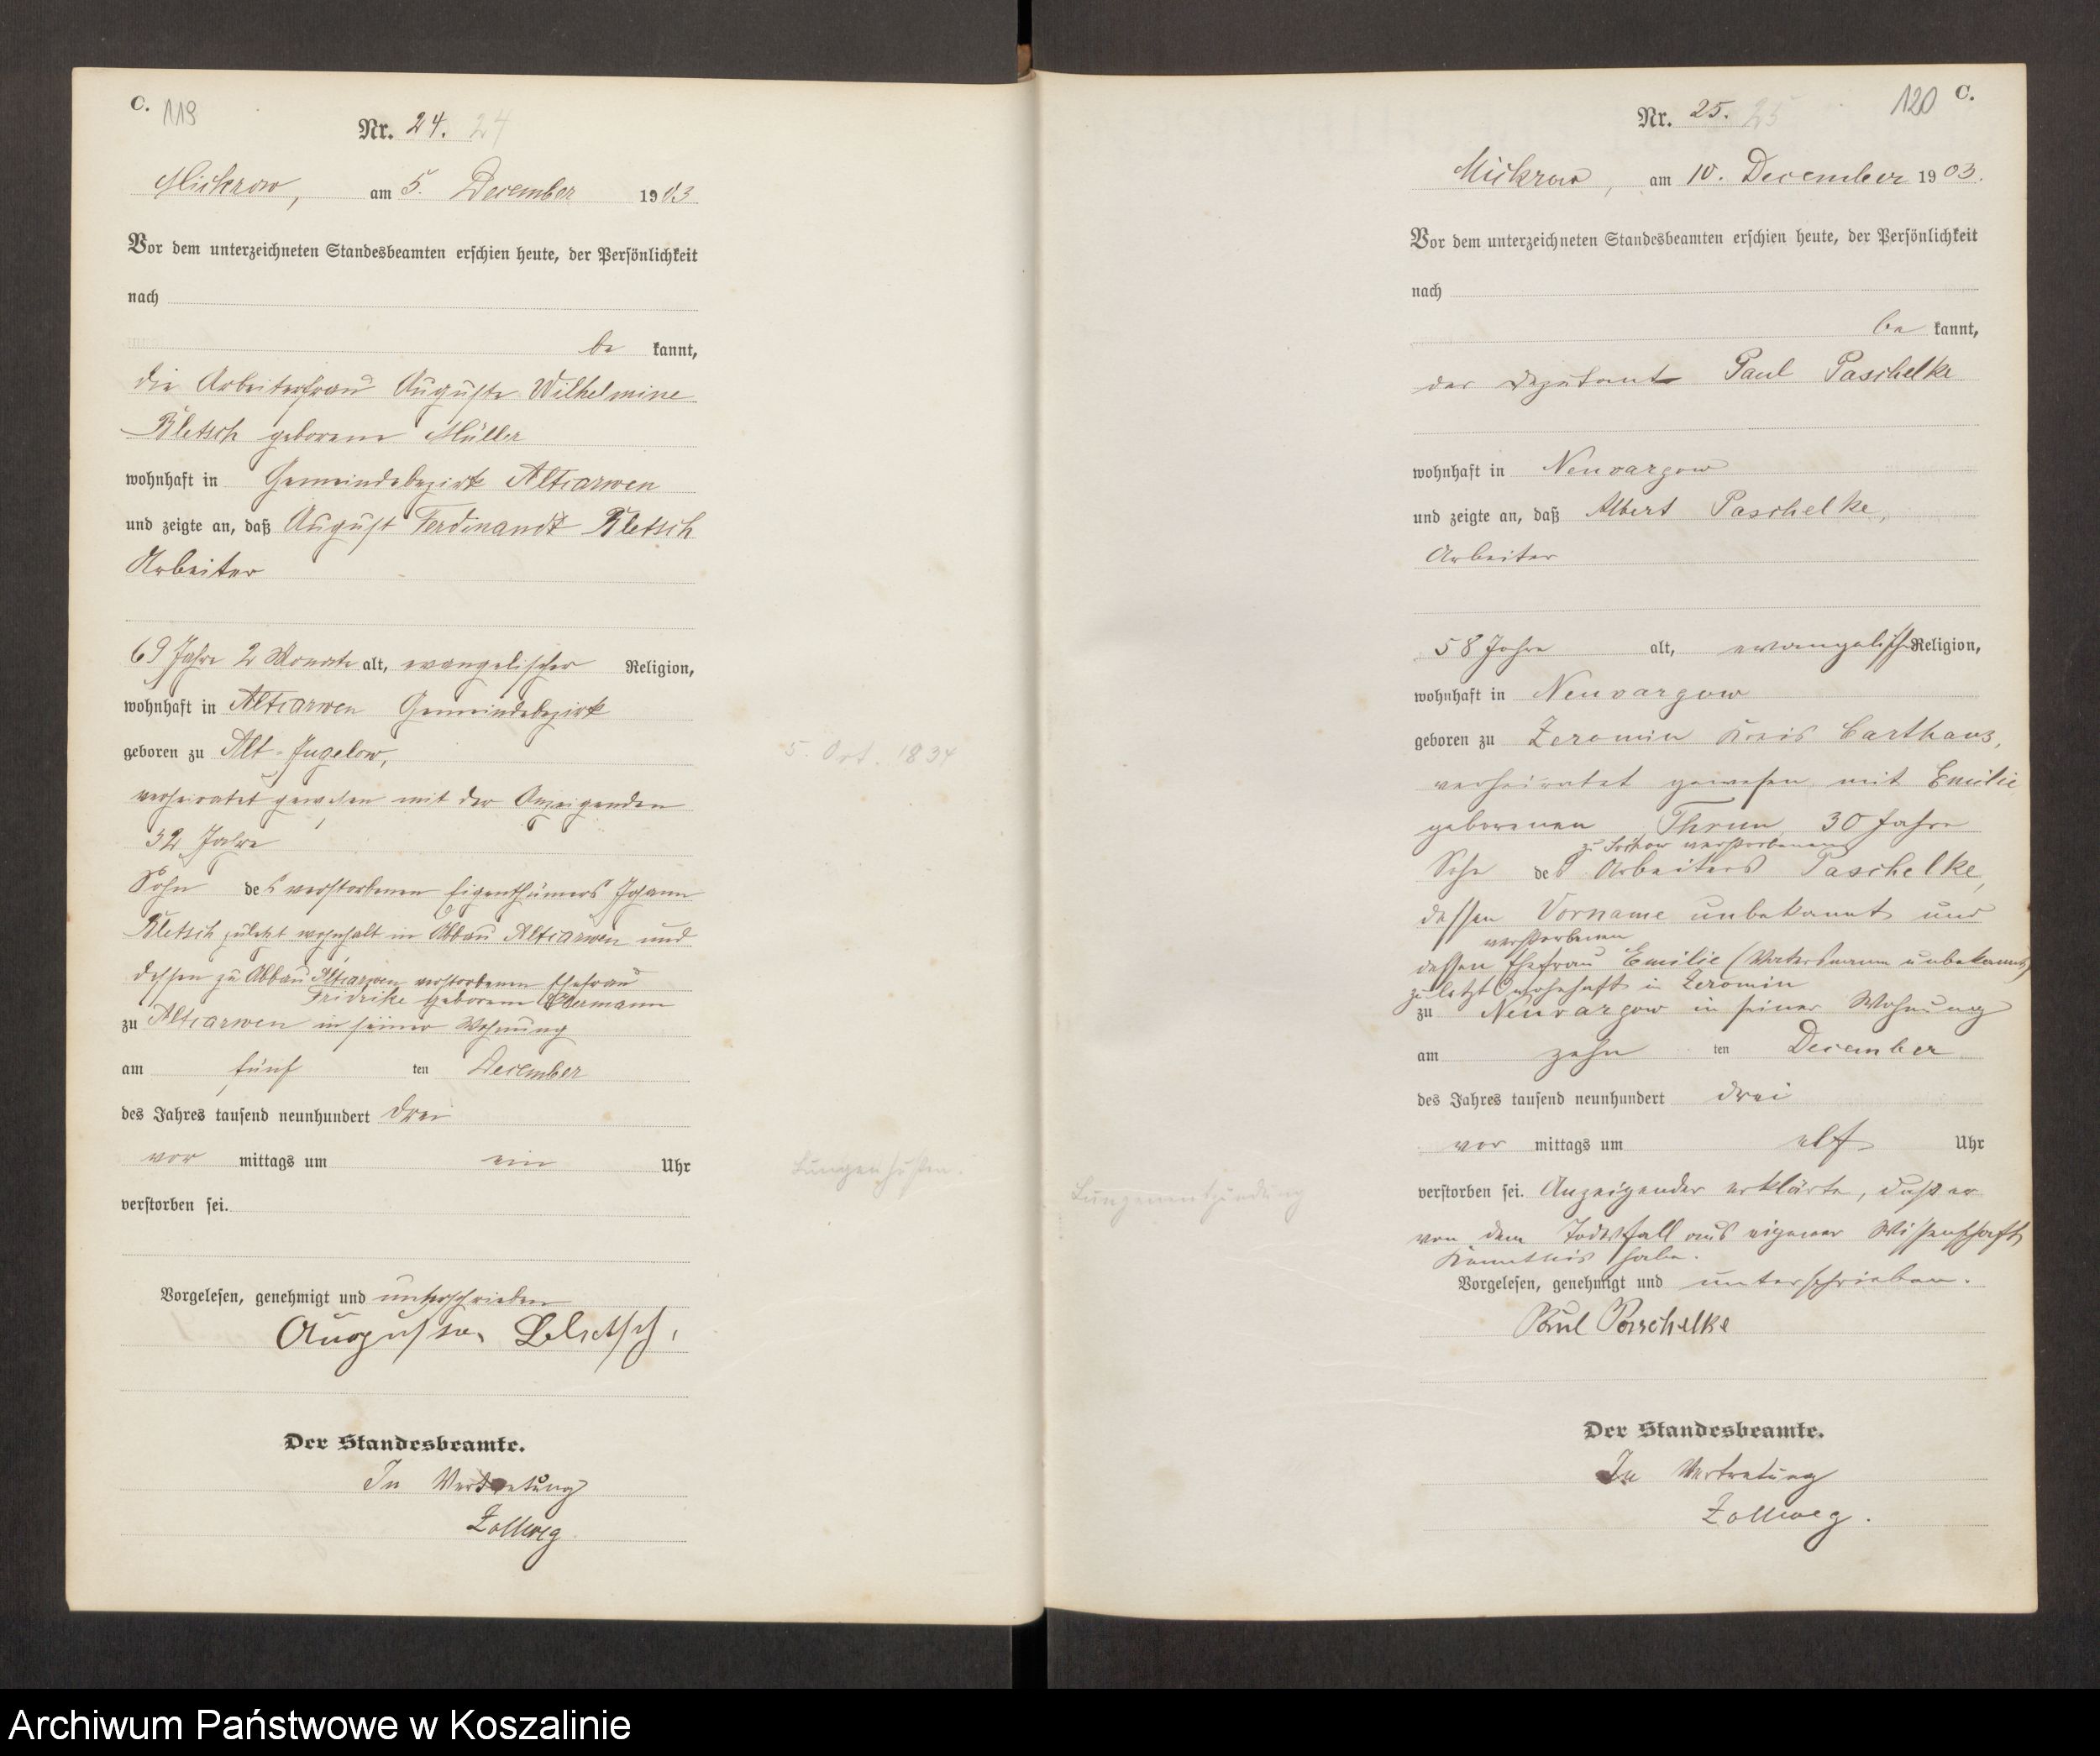 C. 119
Nr. 24. 24
Mickrow, am 5. December 1903
Vor dem unterzeichneten Standesbeamten erschien heute, der Persönlichkeit
nach
be kannt,
die Arbeiterfrau Auguste Wilhelmine
Bletsch geborene Müller
wohnhaft in Gemeindebezirk Altcarwen
und zeigte an, daß August Ferdinandt Bletsch
Arbeiter
69 Jahre 2 Monate alt, evangelischer Religion,
wohnhaft in Altcarwen Gemeindebezirk
geboren zu Alt-Jugelow,
5. Oct. 1834
verheiratet gewesen mit der Anzeigenden
32 Jahre
Sohn des verstorbenen Eigenthümers Johann
Bletsch zuletzt wohnhaft in Abbau Altcarwen und
dessen zu Abbau Altcarwen verstorbenen Ehefrau
Fridrike geborene
zu Altcarwen in seiner Wohnung
am fünf ten December
des Jahres tausend neunhundert drei
vor mittags um ein Uhr
Lungenhusten.
verstorben sei.
Vorgelesen, genehmigt und unterschrieben
Auguste Bletsch.
Der Standesbeamte.
In Vertretung
Zollweg
120 C.
Nr. 25. 25
Mickrow, am 10. December 1903.
Vor dem unterzeichneten Standesbeamten erschien heute, der Persönlichkeit
nach
be kannt,
der Deputant Paul Paschelke
wohnhaft in Neuvargow
und zeigte an, daß Albert Paschelke,
Arbeiter
58 Jahre alt, evangelischer Religion,
wohnhaft in Neuvargow
geboren zu Zeromin Kreis Carthaus,
verheiratet gewesen mit Emilie
geborenen Thrun, 30 Jahre
zu verstorbenen
Sohn des Arbeiters Paschelke,
dessen Vorname unbekannt und
verstorbenen
dessen Ehefrau Emilie (Vatersname unbekannt)
zuletzt wohnhaft in Zeromin
zu Neuvargow in seiner Wohnung
am zehn ten December
des Jahres tausend neunhundert drei
vor mittags um elf Uhr
Lungenentzündung
verstorben sei. Anzeigender erklärte, daß er
von dem Todesfall aus eigener Wissenschaft
Kenntnis habe.
Vorgelesen, genehmigt und unterschrieben.
Paul Paschelke
Der Standesbeamte.
In Vertretung
Zollweg.
Archiwum Państwowe w Koszalinie